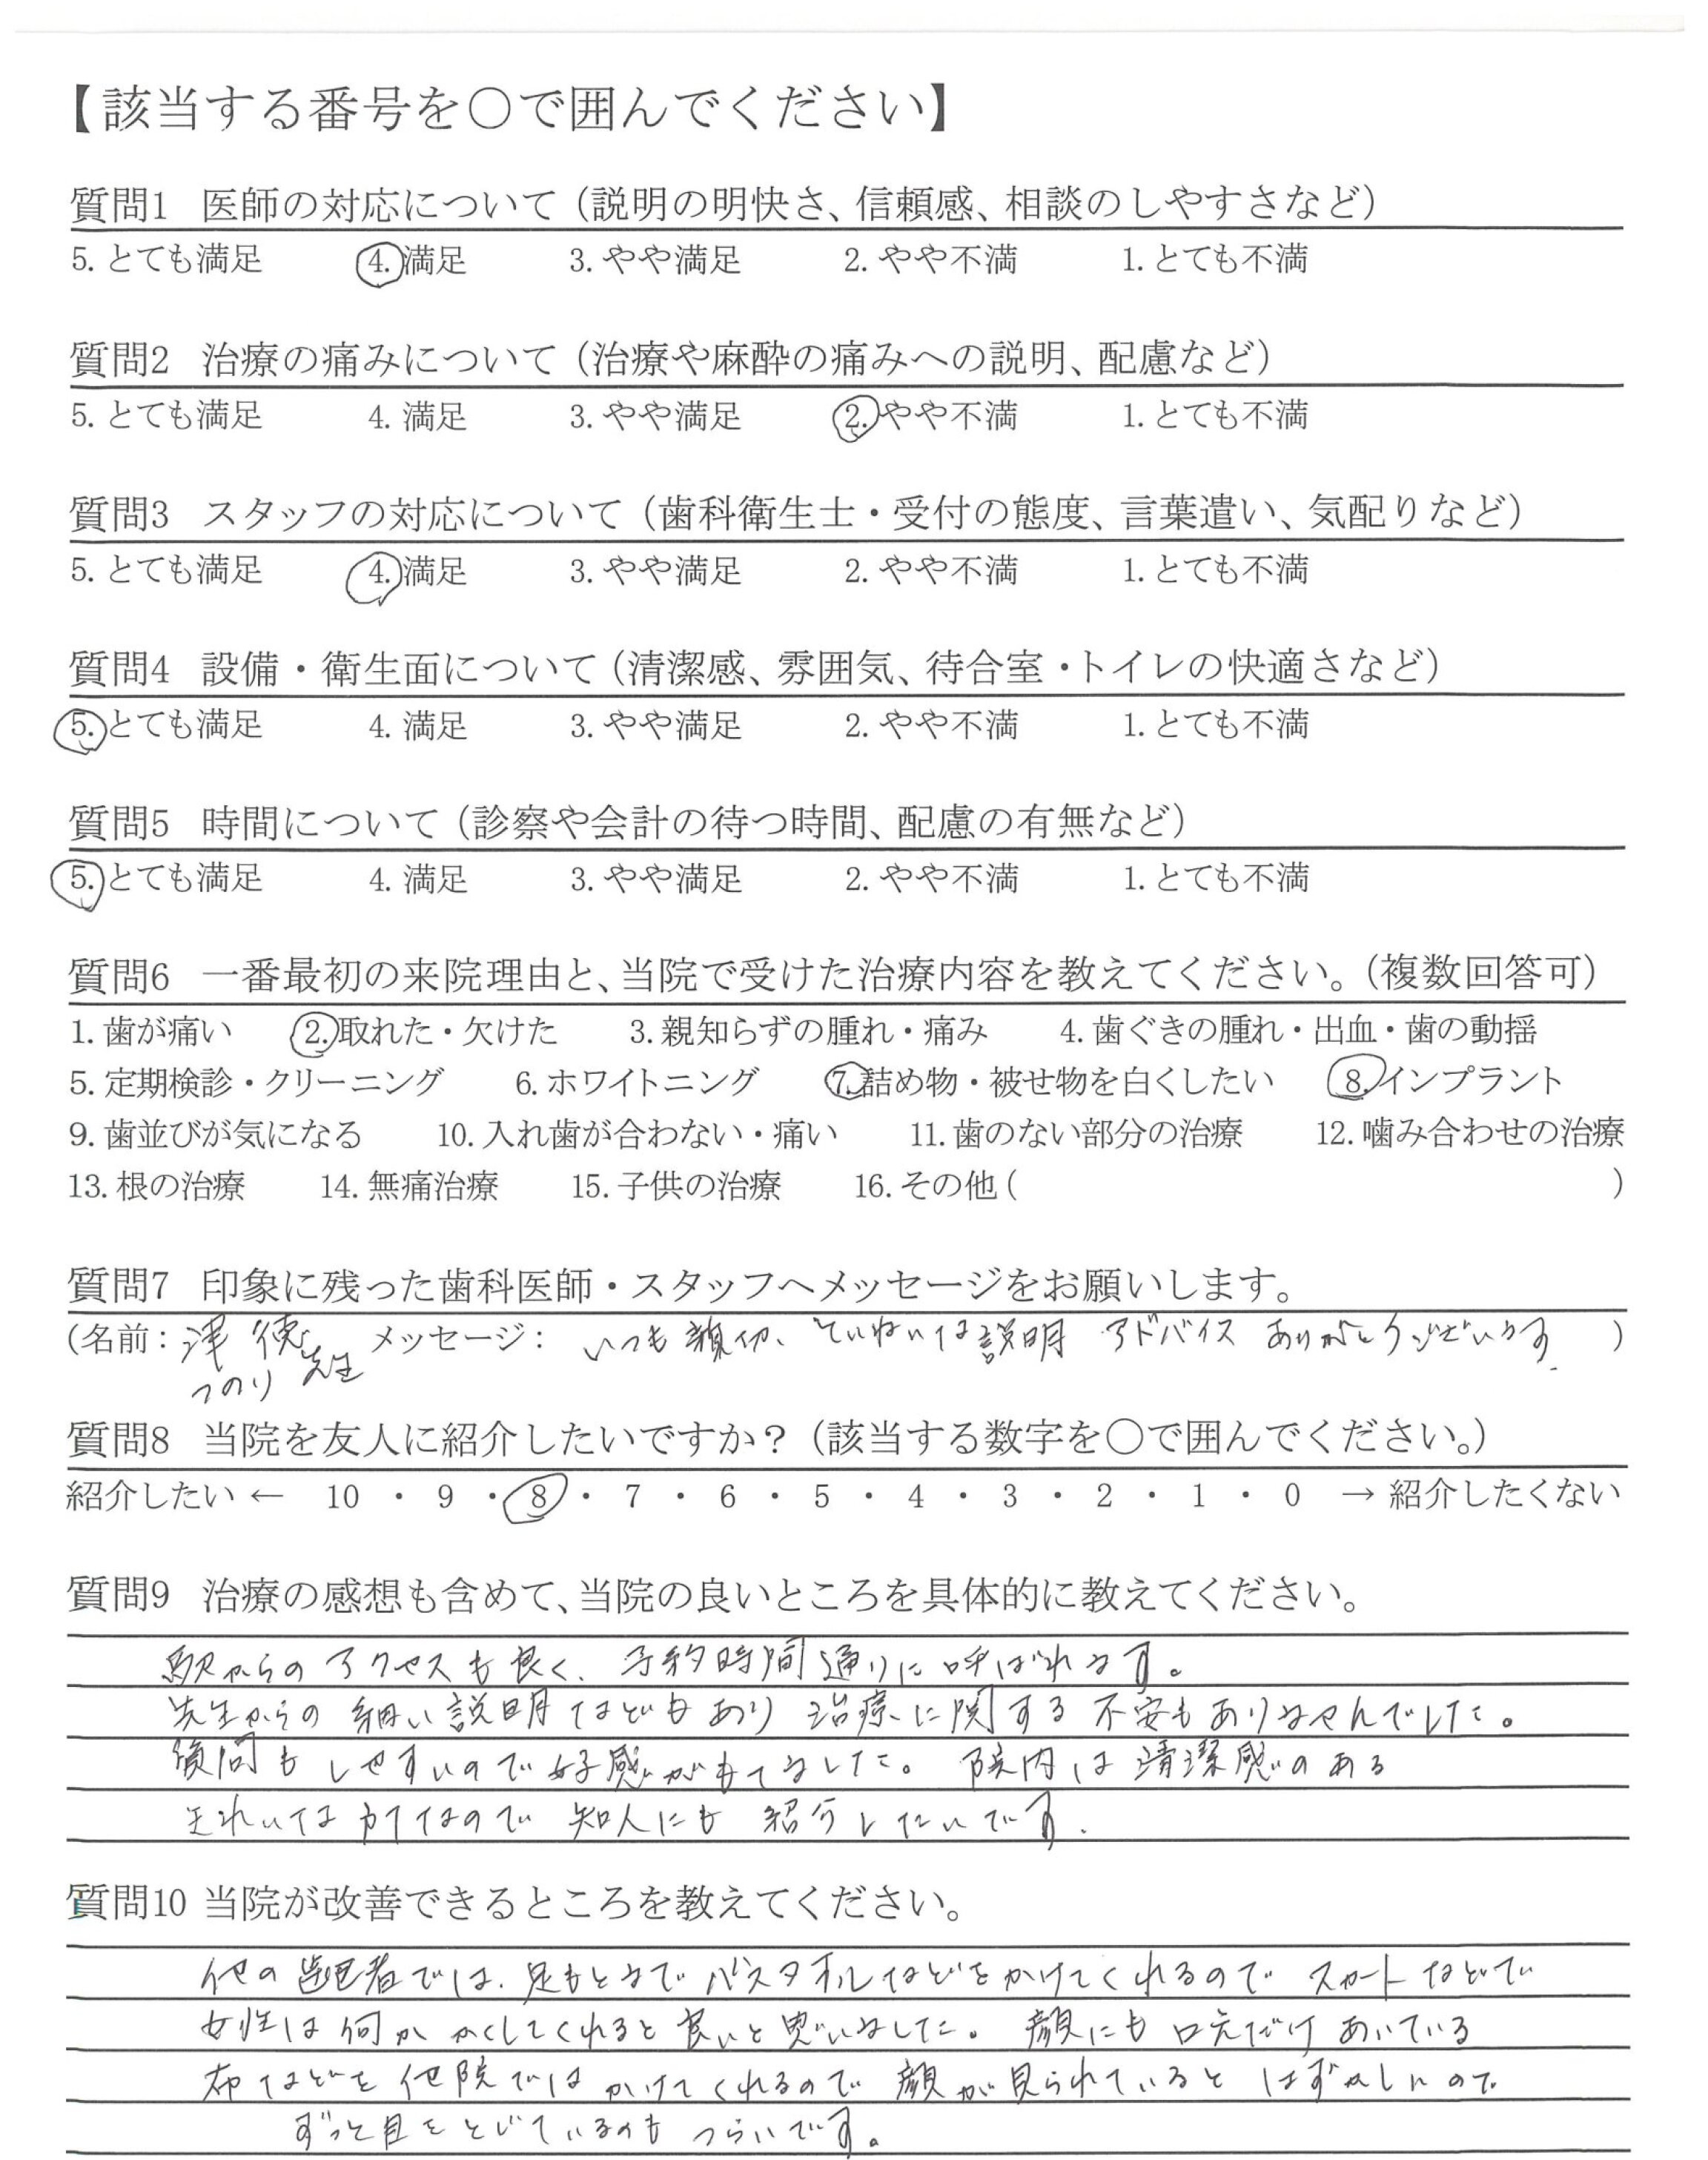 【該当する番号を〇で囲んでください】
質問1 医師の対応について（説明の明快さ、信頼感、相談のしやすさなど）
5. とても満足 4. 満足 3. やや満足 2. やや不満 1. とても不満
質問2 治療の痛みについて（治療や麻酔の痛みへの説明、配慮など）
5. とても満足 4. 満足 3. やや満足 2. やや不満 1. とても不満
質問3 スタッフの対応について（歯科衛生士・受付の態度、言葉遣い、気配りなど）
5. とても満足 4. 満足 3. やや満足 2. やや不満 1. とても不満
質問4 設備・衛生面について（清潔感、雰囲気、待合室・トイレの快適さなど）
5. とても満足 4. 満足 3. やや満足 2. やや不満 1. とても不満
質問5 時間について（診察や会計の待つ時間、配慮の有無など）
5. とても満足 4. 満足 3. やや満足 2. やや不満 1. とても不満
質問6 一番最初の来院理由と、当院で受けた治療内容を教えてください。（複数回答可）
1. 歯が痛い 2. 取れた・欠けた 3. 親知らずの腫れ・痛み 4. 歯ぐきの腫れ・出血・歯の動揺
5. 定期検診・クリーニング 6. ホワイトニング 7. 詰め物・被せ物を白くしたい 8. インプラント
9. 歯並びが気になる 10. 入れ歯が合わない・痛い 11. 歯のない部分の治療 12. 噛み合わせの治療
13. 根の治療 14. 無痛治療 15. 子供の治療 16. その他（ ）
質問7 印象に残った歯科医師・スタッフへメッセージをお願いします。
（名前： 徳先生 メッセージ： いつも親切、ていねいな説明 アドバイス ありがとうございます. ）
つのり
質問8 当院を友人に紹介したいですか？（該当する数字を〇で囲んでください。）
紹介したい ← 10 ・ 9 ・ 8 ・ 7 ・ 6 ・ 5 ・ 4 ・ 3 ・ 2 ・ 1 ・ 0 → 紹介したくない
質問9 治療の感想も含めて、当院の良いところを具体的に教えてください。
駅からのアクセスも良く、予約時間通りに呼ばれます。
先生からの細い説明などもあり 治療に関する不安もありませんでした。
質問もしやすいので好感がもてました。 院内は清潔感のある
きれいな なので 知人にも 紹介したいです.
質問10 当院が改善できるところを教えてください。
他の歯医者では、足もとまでバスタオルなどをかけてくれるので スカートなどで
女性は何かかくしてくれると良いと思いました。 顔にも口元だけあいている
布などを他院ではかけてくれるので 顔が見られていると はずかしいので
ずっと目をとじているのも つらいです。